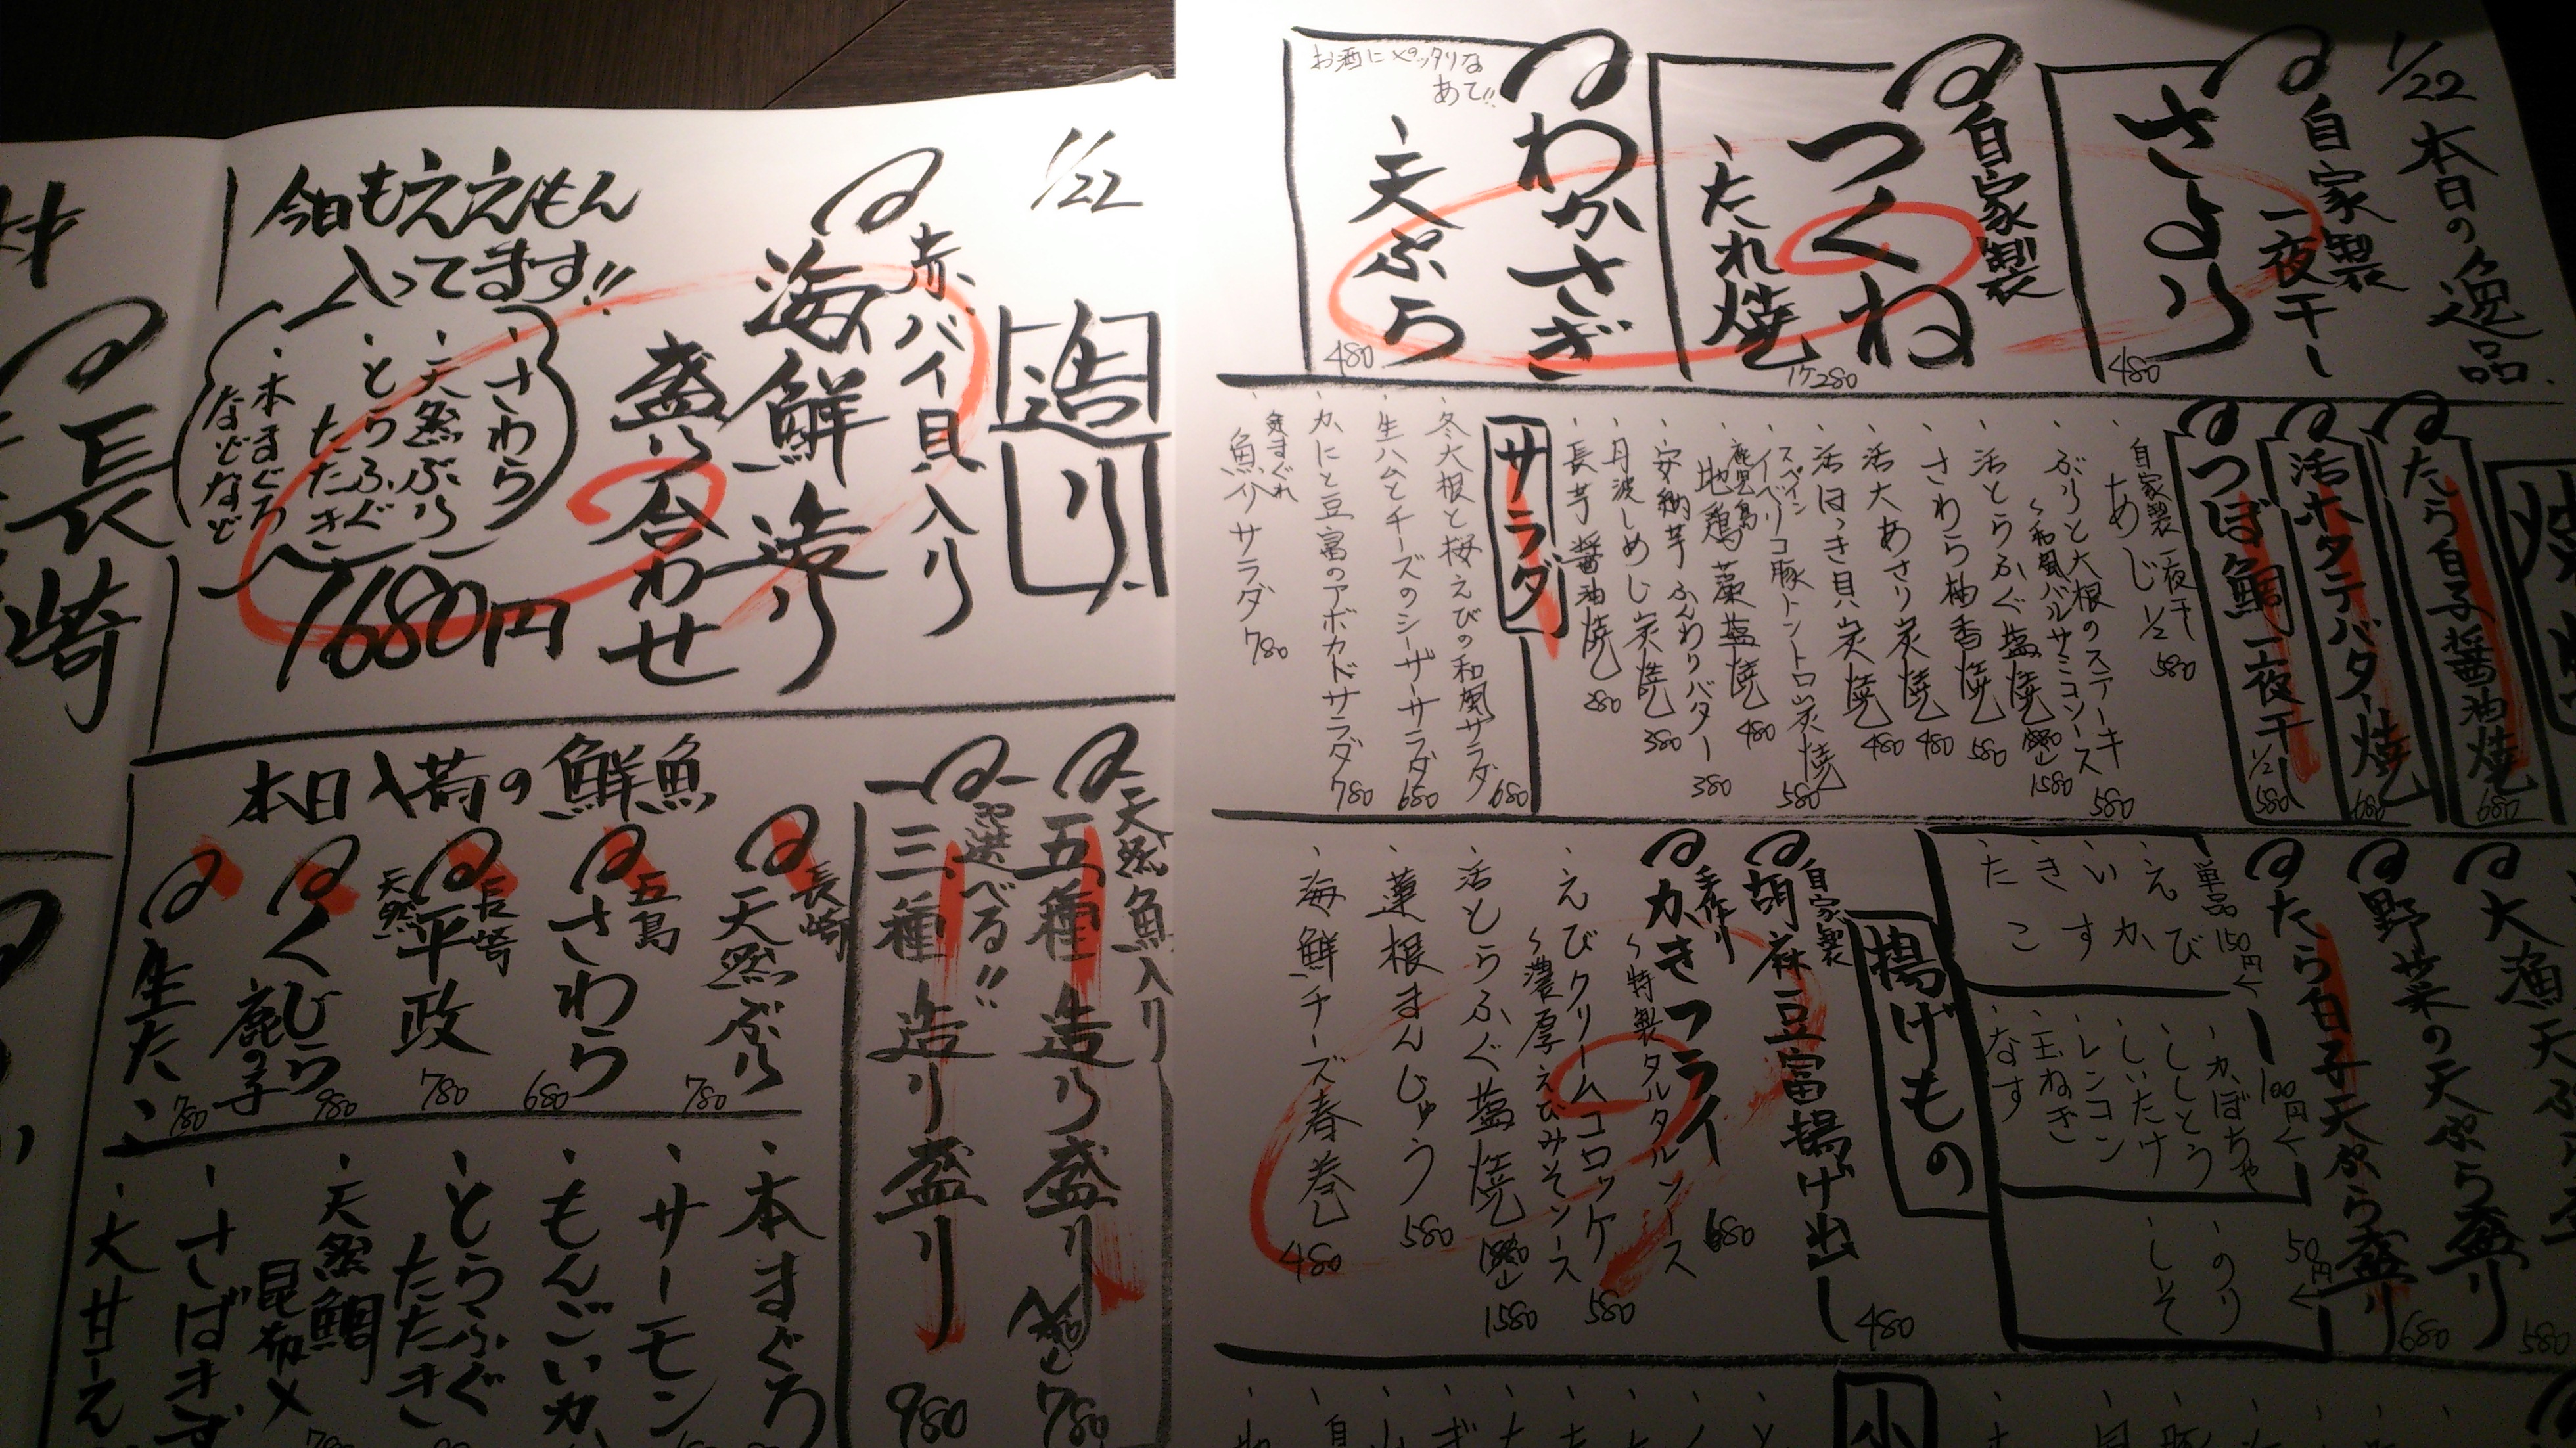 1/22
造り
赤バイ貝入り
海鮮造り
盛り合わせ
1680円
今日もええもん
入ってます!!
・さわら
・天然ぶり
・とらふぐ
たたき
・本まぐろ
などなど
長崎
天然魚入り
五種造り盛り
780
選べる!!
三種造り盛り
980
本日入荷の鮮魚
長崎
天然ぶり
780
五島
さわら
680
長崎
天然
平政
780
くじら
鹿の子
980
生たこ
780
・本まぐろ
・サーモン
・もんごいか
・とらふぐ
たたき
・天然鯛
昆布〆
・さばきずし
・大甘えび
1/22 本日の逸品
自家製
一夜干し
さより
480
自家製
つくね
・たれ焼
1ヶ280
わかさぎ
・天ぷら
480
お酒にピッタリな
あて!!
たら白子醤油焼
680
活ホタテバター焼
680
つぼ鯛一夜干し
1/2 580
・自家製一夜干
あじ 1/2 580
・ぶりと大根のステーキ
〜和風バルサミコソース 580
・活とらふぐ塩焼 1580
・さわら柚香焼 580
・活大あさり炭焼 480
・活ほっき貝炭焼 480
・スペイン
イベリコ豚トントロ炭焼 580
・鹿児島
地鶏藁塩焼 480
・安納芋ふんわりバター 380
・丹波しめじ炭焼 380
・長芋醤油焼 280
サラダ
・冬大根と桜えびの和風サラダ 680
・生ハムとチーズのシーザーサラダ 680
・かにと豆富のアボカドサラダ 780
・気まぐれ
魚介サラダ 780
大漁天ぷら盛
580
野菜の天ぷら盛り
680
たら白子天ぷら盛り
単品 150円←
・えび
・いか
・きす
・たこ
100円←
・かぼちゃ
・ししとう
・しいたけ
・レンコン
・玉ねぎ
・なす
50円←
・のり
・しそ
揚げもの
自家製
胡麻豆富揚げ出し
480
手作り
かきフライ
〜特製タルタルソース
680
・えびクリームコロッケ
〜濃厚えびみそソース
580
・活とらふぐ塩焼
1580
・蓮根まんじゅう
580
・海鮮チーズ春巻
480
小